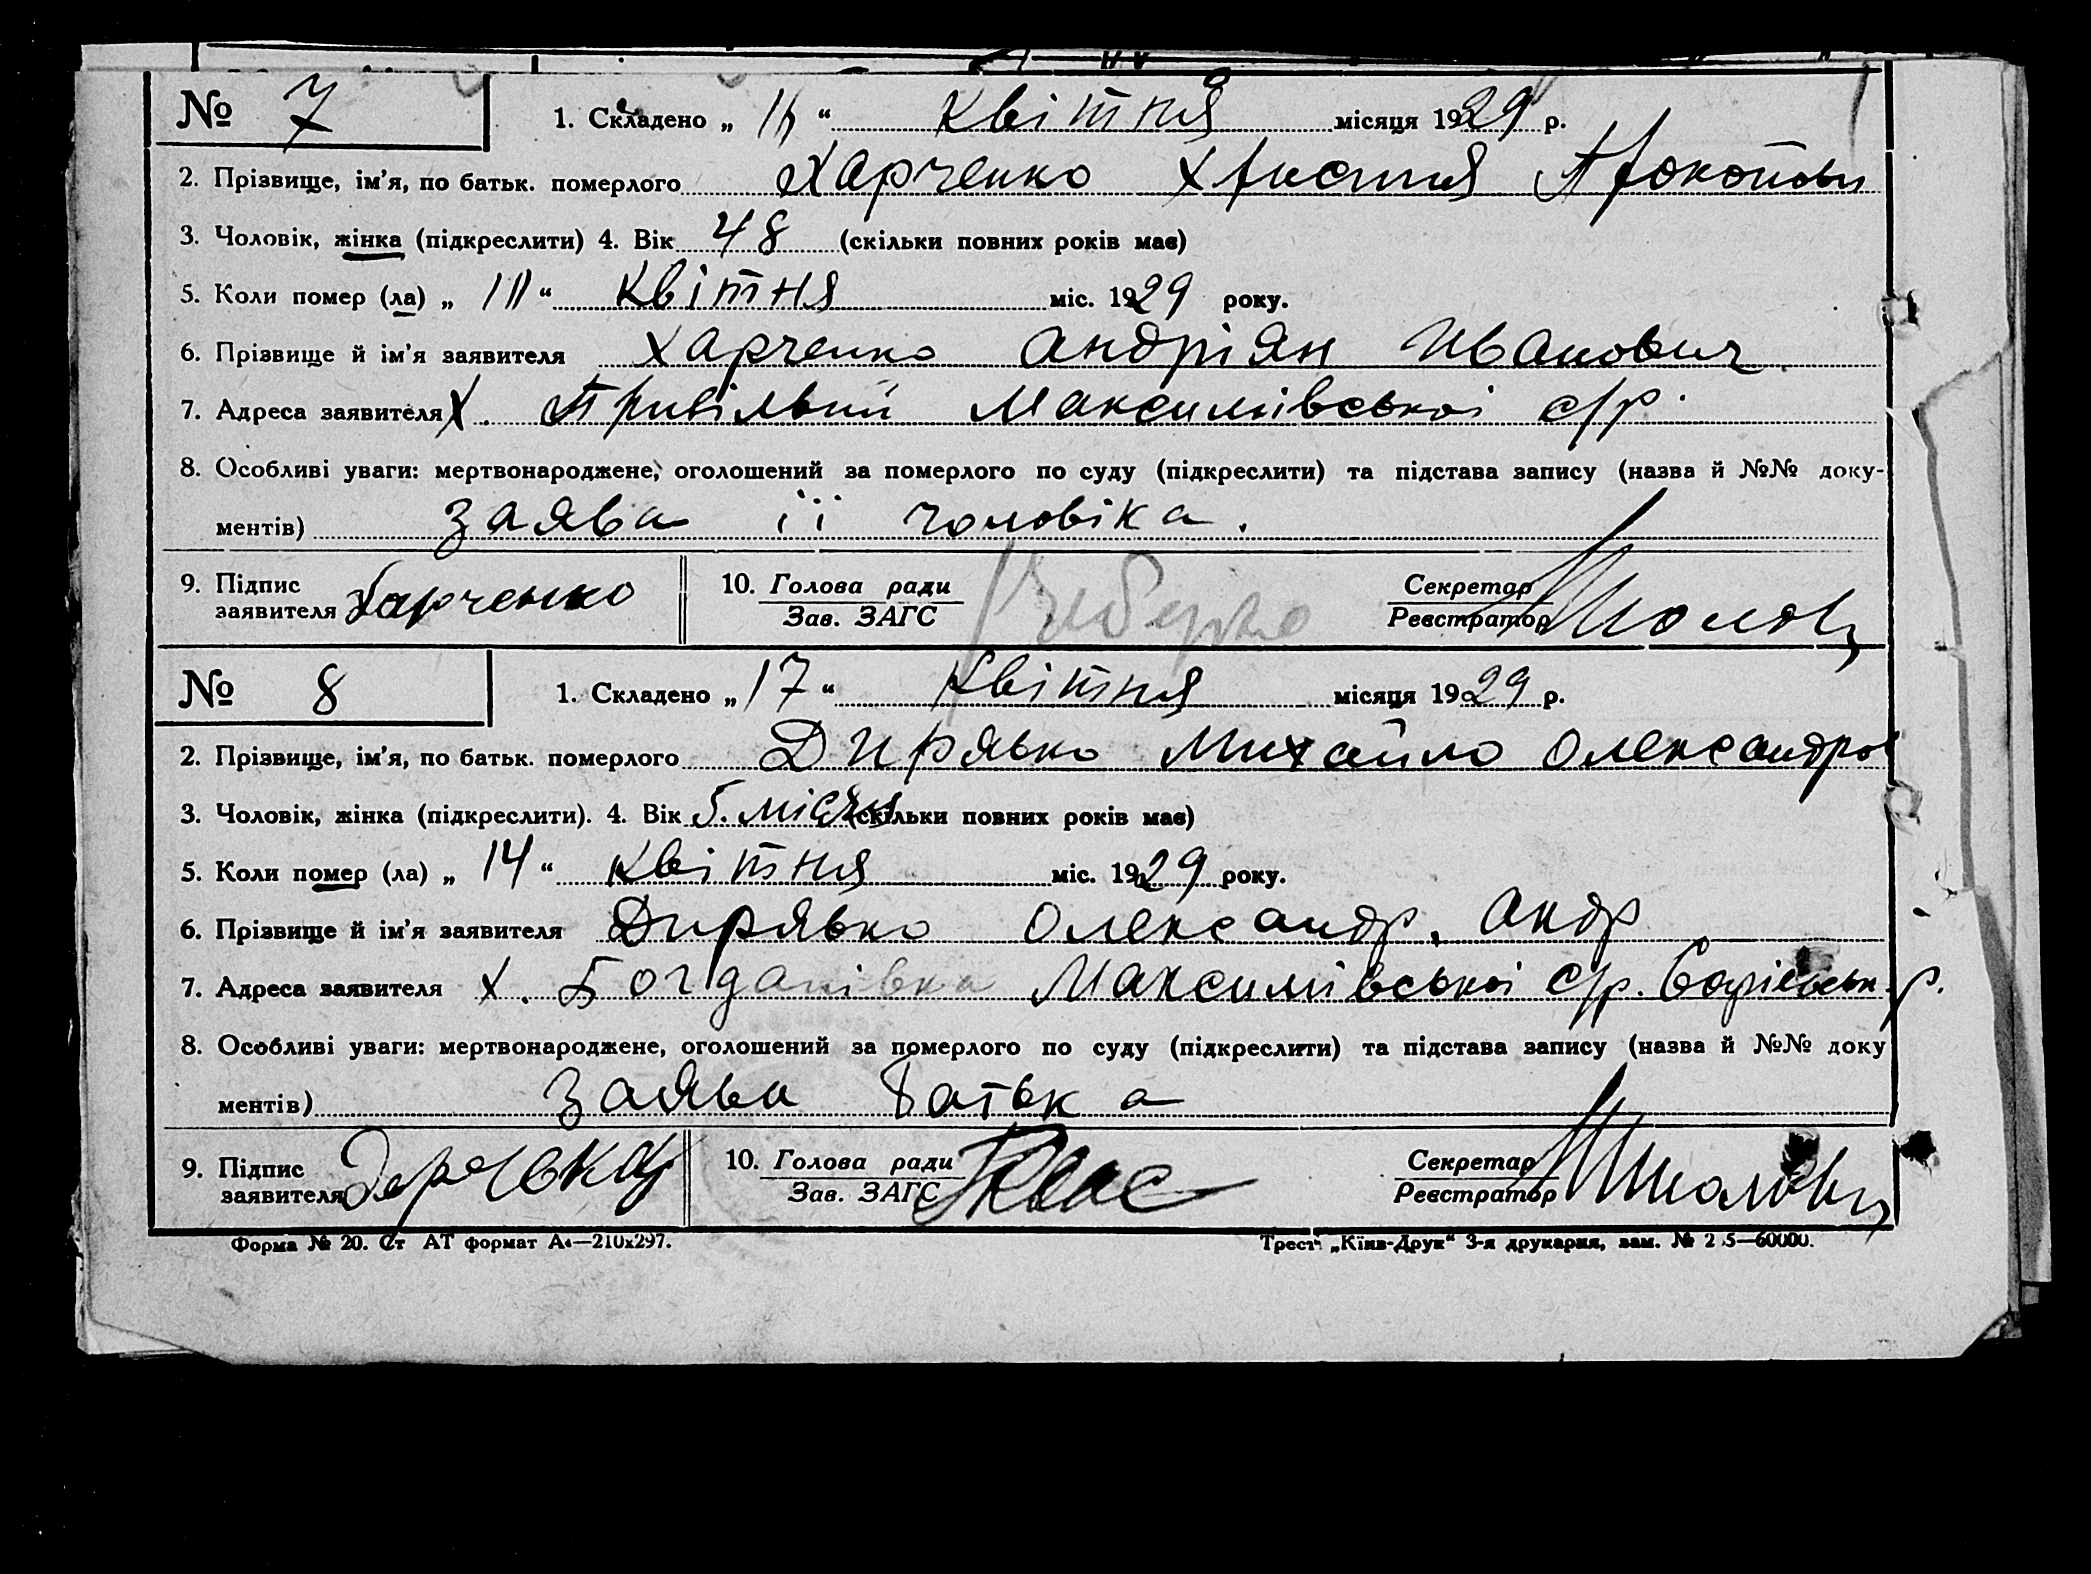 № 7 1. Складено „ “ Квітня місяця 1929 р.
2. Прізвище, ім’я, по батьк. померлого Харченко Христия Прокопови
3. Чоловік, жінка (підкреслити) 4. Вік 48 (скільки повних років має)
5. Коли помер (ла) „ “ Квітня міс. 1929 року.
6. Прізвище й ім’я заявителя Харченко Андріян Иванович
7. Адреса заявителя х. Привільний Максиміївської с/р.
8. Особливі уваги: мертвонароджене, оголошений за померлого по суду (підкреслити) та підстава запису (назва й №№ доку-
ментів) заява її чоловіка.
9. Підпис заявителя Харченко 10. Голова ради Зав. ЗАГС Секретар Реєстратор
№ 8 1. Складено „ 17 “ Квітня місяця 1929 р.
2. Прізвище, ім’я, по батьк. померлого Дирявко Михайло Олександров
3. Чоловік, жінка (підкреслити). 4. Вік 5. місяц (скільки повних років має)
5. Коли помер (ла) „ 14 “ Квітня міс. 1929 року.
6. Прізвище й ім’я заявителя Дирявко Олександр. Андр
7. Адреса заявителя х. Богданівка Максиміївської с/р. р.
8. Особливі уваги: мертвонароджене, оголошений за померлого по суду (підкреслити) та підстава запису (назва й №№ доку
ментів) заява батька
9. Підпис заявителя 10. Голова ради Зав. ЗАГС Секретар Реєстратор
Форма № 20. Ст АТ формат А4—210х297. Трест „Київ-Друк“ 3-я друкарня, зам. № 2 5—60000.